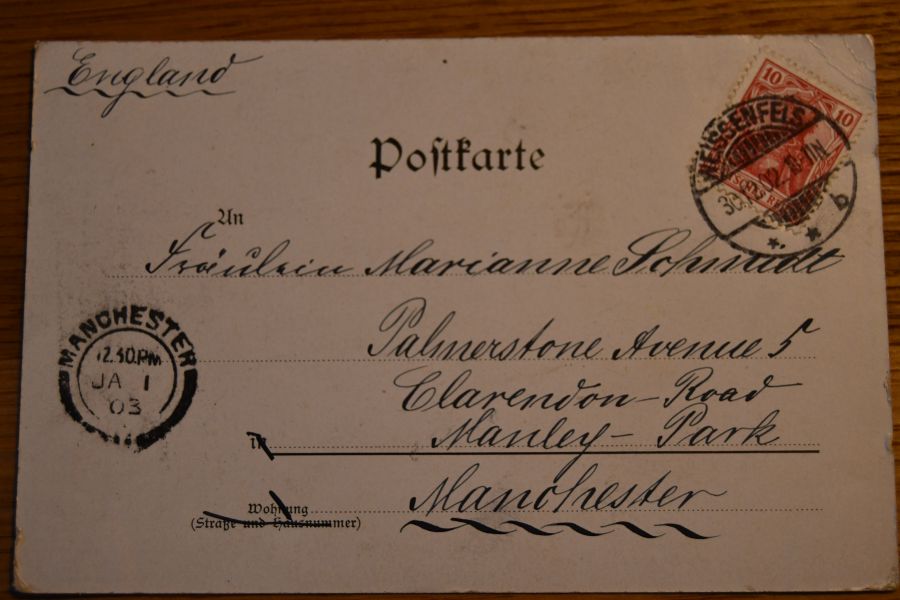 England
Postkarte
10 10
WEISSENFELS
02
b
An
Fräulein Marianne Schmidt
Palmerstone Avenue 5
MANCHESTER
12.30PM
JA 1
03
Clarendon-Road
Manley-Park
in
Manchester
Wohnung
(Straße und Hausnummer)